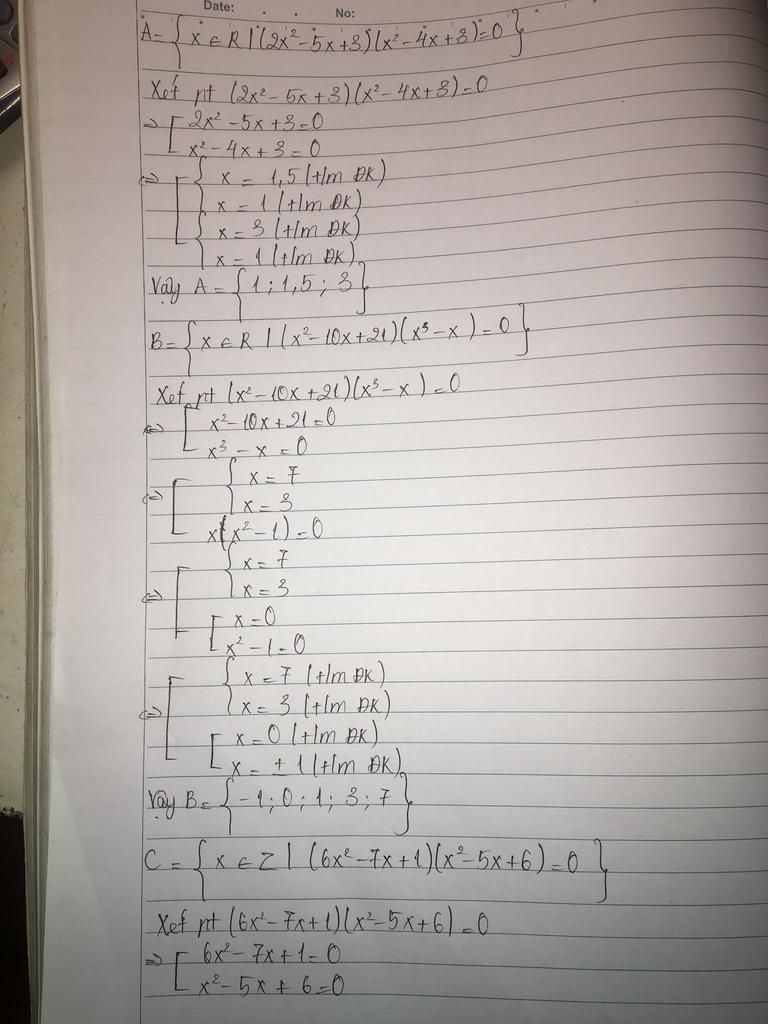 Date: No:
A = { x ∈ R | (2x² - 5x + 3)(x² - 4x + 3) = 0 }
Xét pt (2x² - 5x + 3)(x² - 4x + 3) = 0
=> [ 2x² - 5x + 3 = 0
x² - 4x + 3 = 0
<=> [ { x = 1,5 (t/m ĐK)
x = 1 (t/m ĐK)
{ x = 3 (t/m ĐK)
x = 1 (t/m ĐK)
Vậy A = { 1 ; 1,5 ; 3 }
B = { x ∈ R | (x² - 10x + 21)(x³ - x) = 0 }
Xét pt (x² - 10x + 21)(x³ - x) = 0
<=> [ x² - 10x + 21 = 0
x³ - x = 0
<=> [ { x = 7
x = 3
x(x² - 1) = 0
<=> [ { x = 7
x = 3
[ x = 0
x² - 1 = 0
<=> [ { x = 7 (t/m ĐK)
x = 3 (t/m ĐK)
[ x = 0 (t/m ĐK)
x = ± 1 (t/m ĐK)
Vậy B = { -1 ; 0 ; 1 ; 3 ; 7 }
C = { x ∈ Z | (6x² - 7x + 1)(x² - 5x + 6) = 0 }
Xét pt (6x² - 7x + 1)(x² - 5x + 6) = 0
=> [ 6x² - 7x + 1 = 0
x² - 5x + 6 = 0